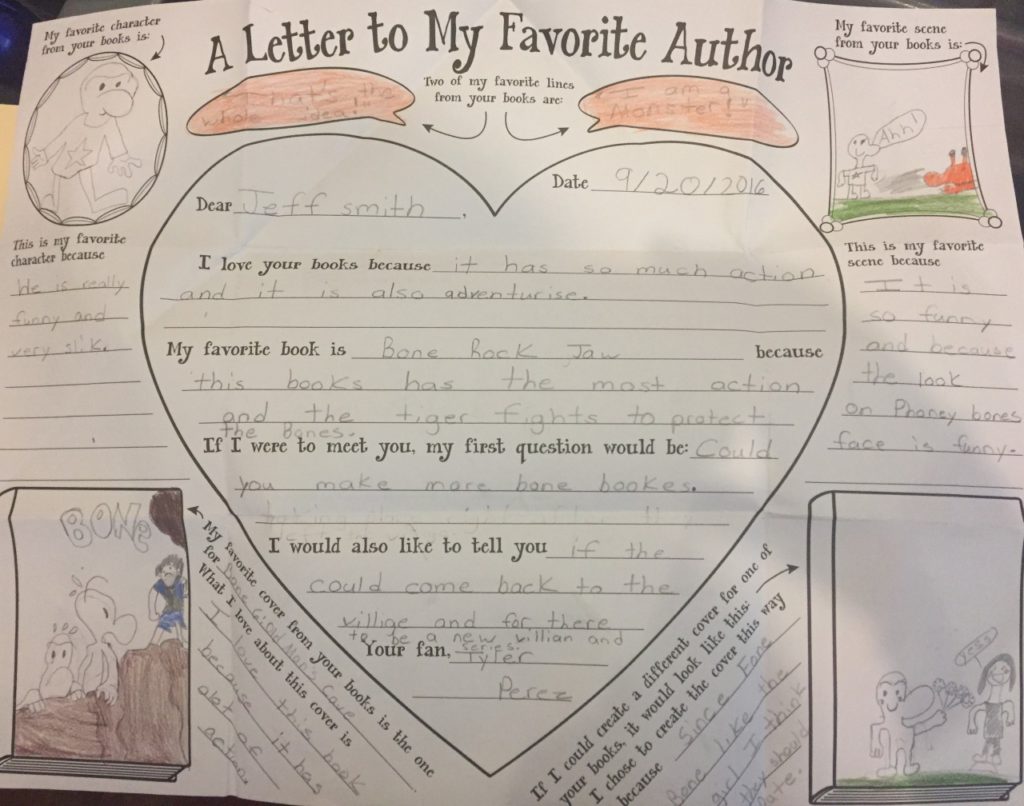 A Letter to My Favorite Author
My favorite character
from your books is:
Two of my favorite lines
from your books are:
whole idea!
I am a
Monster!
My favorite scene
from your books is:
Ahh!
This is my favorite
character because
He is really
funny and
very slik.
Date 9/20/2016
Dear Jeff smith,
I love your books because it has so much action
and it is also adventurise.
My favorite book is Bone Rock Jaw because
this books has the most action
and the tiger fights to protect
the Bones.
If I were to meet you, my first question would be: Could
you make more bone bookes.
I would also like to tell you if the
could come back to the
villige and for there
to be a new villian and
series.
Your fan, Tyler
Perez
This is my favorite
scene because
It is
so funny
and because
the look
on Phoney bones
face is funny.
BONE
My favorite cover from your books is the one
for Bone
What I love about this cover is
I love this book
because it has
alot of
action.
If I could create a different cover for one of
your books, it would look like this:
I chose to create the cover this way
because Since Fone
Bone like the
girl I think
they should
date.
Yess